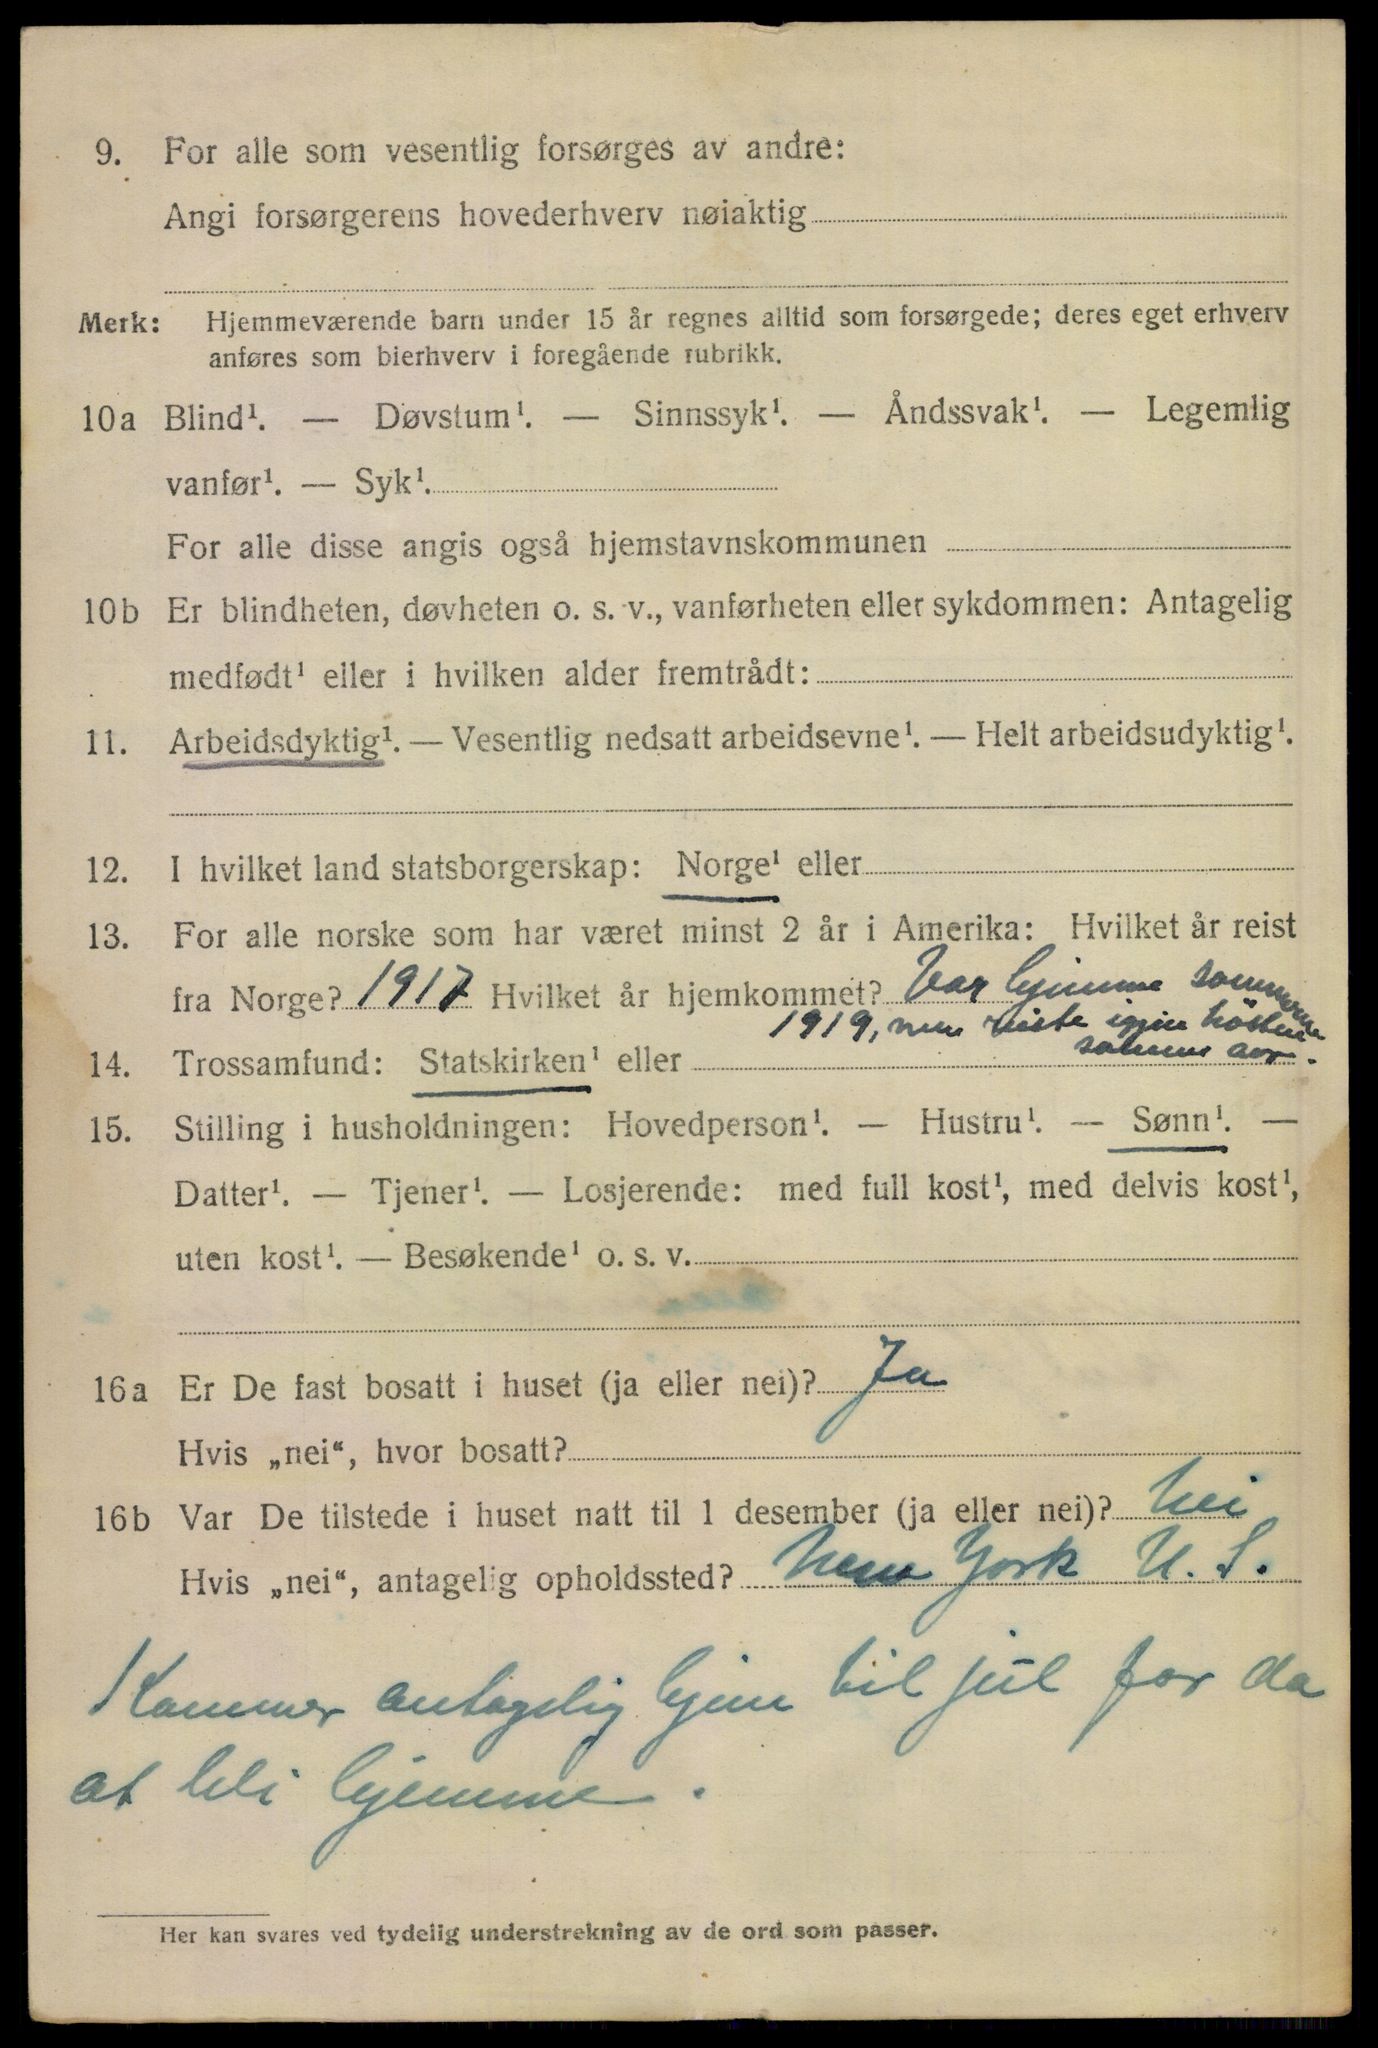 9. For alle som vesentlig forsørges av andre:
Angi forsørgerens hovederhverv nøiaktig
Merk: Hjemmeværende barn under 15 år regnes alltid som forsørgede; deres eget erhverv
anføres som bierhverv i foregående rubrikk.
10a Blind¹. — Døvstum¹. — Sinnssyk¹. — Åndssvak¹. — Legemlig
vanfør¹. — Syk¹.
For alle disse angis også hjemstavnskommunen
10b Er blindheten, døvheten o. s. v., vanførheten eller sykdommen: Antagelig
medfødt¹ eller i hvilken alder fremtrådt:
11. Arbeidsdyktig¹. — Vesentlig nedsatt arbeidsevne¹. — Helt arbeidsudyktig¹.
12. I hvilket land statsborgerskap: Norge¹ eller
13. For alle norske som har været minst 2 år i Amerika: Hvilket år reist
fra Norge? 1917 Hvilket år hjemkommet? Var hjemme sommeren
1919, men reiste igjen hösten
samme aar.
14. Trossamfund: Statskirken¹ eller
15. Stilling i husholdningen: Hovedperson¹. — Hustru¹. — Sønn¹. —
Datter¹. — Tjener¹. — Losjerende: med full kost¹, med delvis kost¹,
uten kost¹. — Besøkende¹ o. s. v.
16a Er De fast bosatt i huset (ja eller nei)? Ja
Hvis „nei“, hvor bosatt?
16b Var De tilstede i huset natt til 1 desember (ja eller nei)? Nei
Hvis „nei“, antagelig opholdssted? New York U. S.
Kommer antagelig hjem til jul for da
at bli hjemme.
Her kan svares ved tydelig understrekning av de ord som passer.